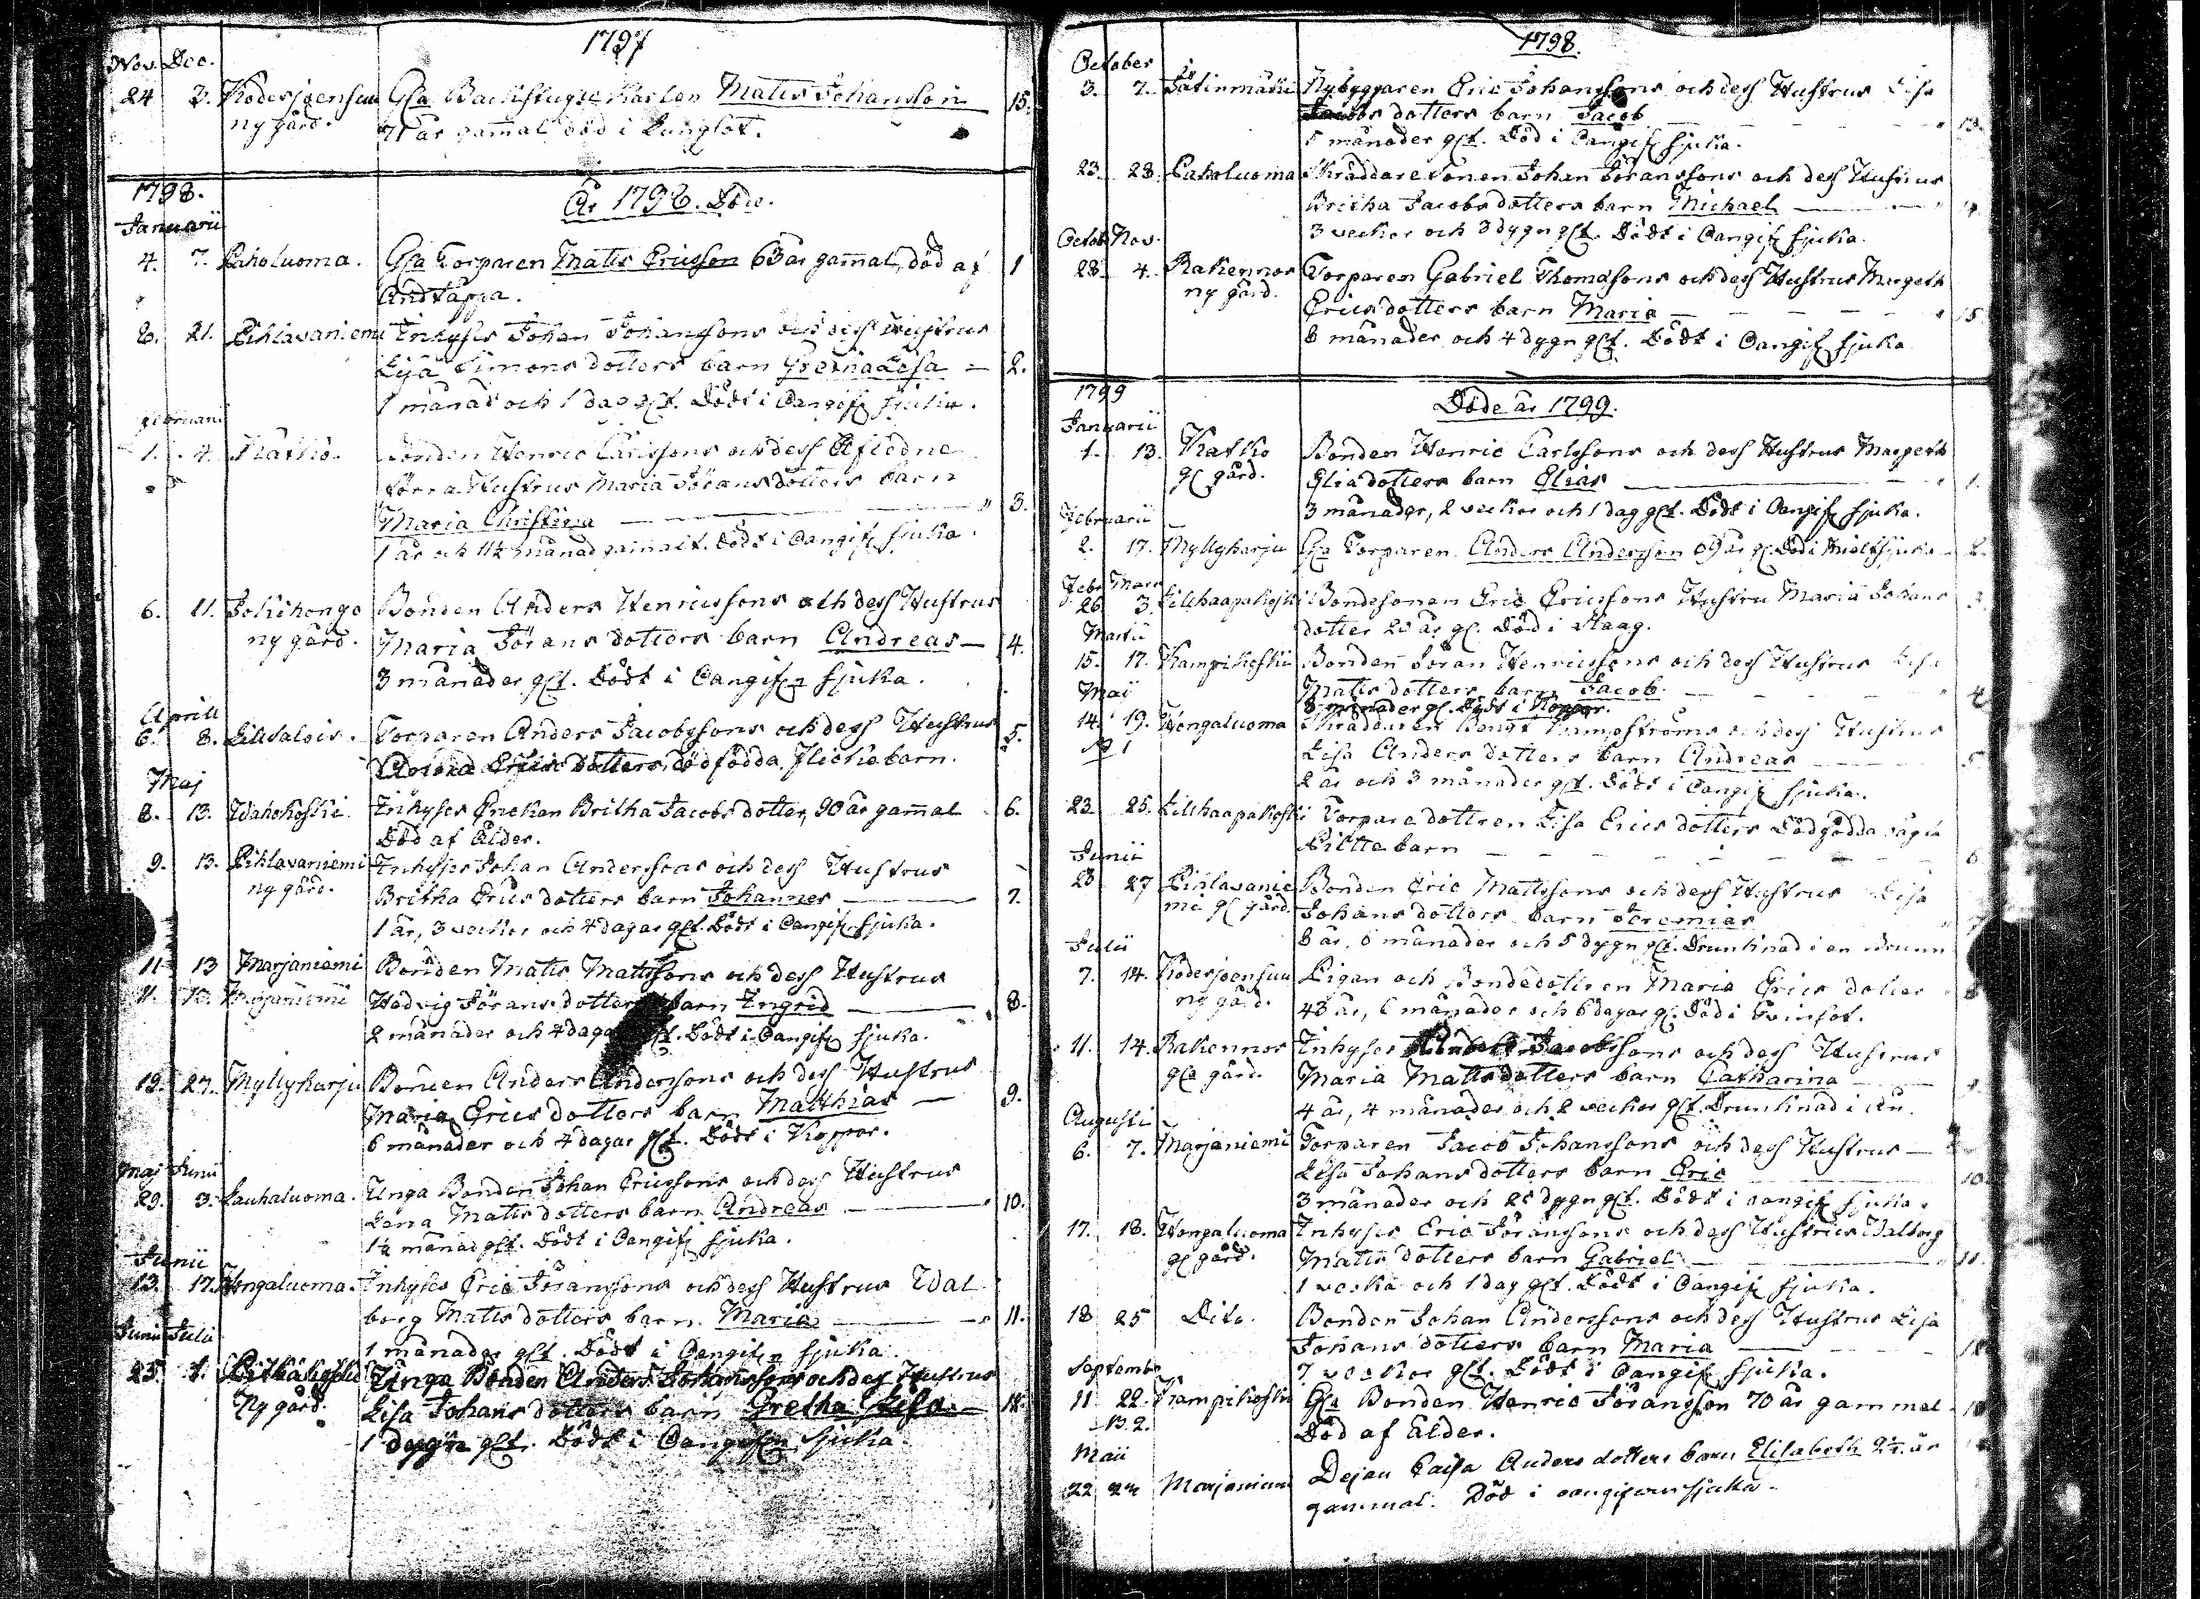 1797
Nov. Dec.
24 3. Kodesjoensuu Gla Backstugu Karlen Matts Johansson 15.
ny gård. 71 år gammal död i Lungsot.
1798.
År 1798. Döde.
Januarii
4. 7. Paholuoma. Gla Torparen Matts Ericsson 63 år gammal, död af 1
Andtäppa.
21. Pihlavaniemi Inhyses Johan Johanssons och dess Hustrus
Lisa Simons dotters barn Gretha Lisa — 2.
1 månad och 1 dag glt. Dödt i Oangifn sjuka.
Februarii
1. 4. Ratko. Bonden Henric Carlssons och dess Aflednе
förra Hustrus Maria Jörans dotters barn
Maria Christina — 3.
1 år och 11½ månad gamalt. Dödt i Oangifn sjuka.
6. 11. Jokihongo Bonden Anders Henricssons och dess Hustrus
ny gård. Maria Jörans dotters barn Andreas — 4.
3 månader glt. Dödt i Oangifn sjuka.
Aprill
6. 8. Lillsalois. Torparen Anders Jacobssons och dess Hustrus 5.
Erics dotters dödfödda flickobarn.
Maj
8. 13. Wahokoski Inhyses Enckan Britha Jacobs dotter, 90 år gammal 6.
Död af Ålder.
9. 13. Pihlavaniemi Inhyses Johan Anderssons och dess Hustrus
ny gård. Britha Erics dotters barn Johannes — 7.
1 år, 3 veckor och 4 dagar glt. Dödt i Oangifn sjuka.
11 13 Marjaniemi Bonden Matts Mattssons och dess Hustrus
11. 13. Marjaniemi Hedvig Jörans dotters barn Ingrid — 8.
2 månader och 4 dagar glt. Dödt i Oangifn sjuka.
19. 27. Myllykarju Bonden Anders Anderssons och dess Hustrus
Maria Erics dotters barn Matthias — 9.
6 månader och 4 dagar glt. Dödt i Koppor.
Maj Junii
29. 3. Lauhaluoma. Unga Bonden Johan Ericssons och dess Hustrus
Lena Matts dotters barn Andreas — 10.
1½ månad glt. Dödt i Oangifn sjuka.
Junii
13. 17. Hongaluoma. Inhyses Eric Joranssons och dess Hustrus Wal
borg Matts dotters barn Maria — 11.
1 månader glt. Dödt i Oangifn sjuka.
Junii Julii
25. 1. Unga Bonden Anders Johanssons och dess Hustrus
Ny gård. Lisa Johans dotters barn Gretha Lisa —
1 dygn glt. Dödt i Oangifn sjuka.
1798.
October
3. 7. Nybyggaren Eric Johanssons och dess Hustrus Lisa
Jacobs dotters barn Jacob — 13.
5 månader glt. Död i Oangifn sjuka.
23. 28. Paholuoma Skräddare Sonen Johan Joranssons och dess Hustrus
Britha Jacobs dotters barn Michael —
3 veckor och 3 dygn glt. Dödt i Oangifn sjuka.
Octob. Nov.
28. 4. Rakennos Torparen Gabriel Thomassons och dess Hustrus Margeth
ny gård. Erics dotters barn Maria — 15.
8 månader och 4 dygn glt. Dödt i Oangifn sjuka.
1799
Döde år 1799.
Januarii
1. 13. Ratko Bonden Henric Carlssons och dess Hustrus Margeth
gl gård. Elia dotters barn Elias — 1.
3 månader, 2 veckor och 1 dag glt. Dödt i Oangifn sjuka.
Februarii
2. 17. Myllykarju Gla Torparen Anders Andersson 69 år gl. Död i 2.
Febr. Mars
26. 3. Lillhaapakoski Bondesonen Eric Ericssons Hustru Maria Johans
dotter år gl. Död i Haag.
Martii
15. 17. Kampikoski Bonden Joran Henricssons och dess Hustrus Lisa
Matts dotters barn Jacob. — 4
8 månader gl. Dödt i Koppor.
Maij
14. 19. Hongaluoma Skräddaren Bengt Kampströms och dess Hustrus
Lisa Anders dotters barn Andreas —
2 år och 3 månader glt. Dödt i Oangifn sjuka.
23. 25. Lillhaapakoski Torpare dottren Lisa Erics dotters Dödfödda oägta
Piltte barn — 6
Junii
23 27 Pihlavanie Bonden Eric Mattssons och dess Hustrus Lisa
mi gl gård. Johans dotters barn Jeremias
8 år, 6 månader och 5 dygn glt. Drunknad i en Brunn
Julii
7. 14. Kodesjoensuu Pigan och Bondedottren Maria Erics dotter
ny gård. 43 år, 6 månader och 6 dagar gl. Död i Tvinsot.
11. 14. Rakennos Inhyses Jacobssons och dess Hustrus
gla gård. Maria Matts dotters barn Catharina —
4 år, 4 månader och 2 veckor glt. Drunknad i Ån.
Augusti
6. 7. Marjaniemi Torparen Jacob Johanssons och dess Hustrus —
Lisa Johans dotters barn Eric — 10.
3 månader och 25 dygn glt. Dödt i oangifn sjuka.
17. 18. Hongaluoma Inhyses Eric Joranssons och dess Hustrus Walborg
gl gård. Matts dotters barn Gabriel — 11.
1 vecka och 1 dag glt. Dödt i Oangifn sjuka.
18 25 Dito. Bonden Johan Anderssons och dess Hustrus Lisa
Johans dotters barn Maria —
7 veckor glt. Dödt i Oangifn sjuka.
September
11 22. Kampikoski Gla Bonden Henric Joransson 70 år gammal
Död af Ålder.
Maii
22 Marjaniemi Dejan Caisa Anders dotters barn Elisabeth 2¼ år
gammal. Död i oangifven sjuka.